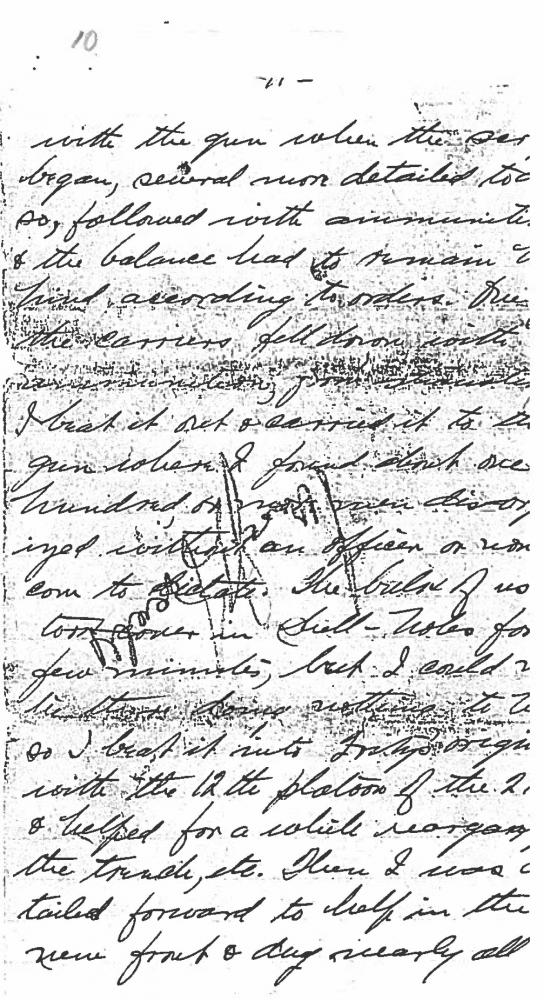 10
11 -
with the gun when the ser
began, several more detailed to
so, followed with ammunit
& the balance had to remain b
hind according to orders.
the carriers fell down with
ammunition,
I beat it out & carried it to th
gun where I found about one
hundred or more men disor
ized without an officer or non
com to dictate. The bulk of us
took cover in Shell-holes for
few minutes, but I could n
lie there doing nothing to
so I beat it into origin
with the 12th platoon of the 2
& helped for a while reorgan
the trench, etc. Then I was
tailed forward to help in the
new front & dug nearly all